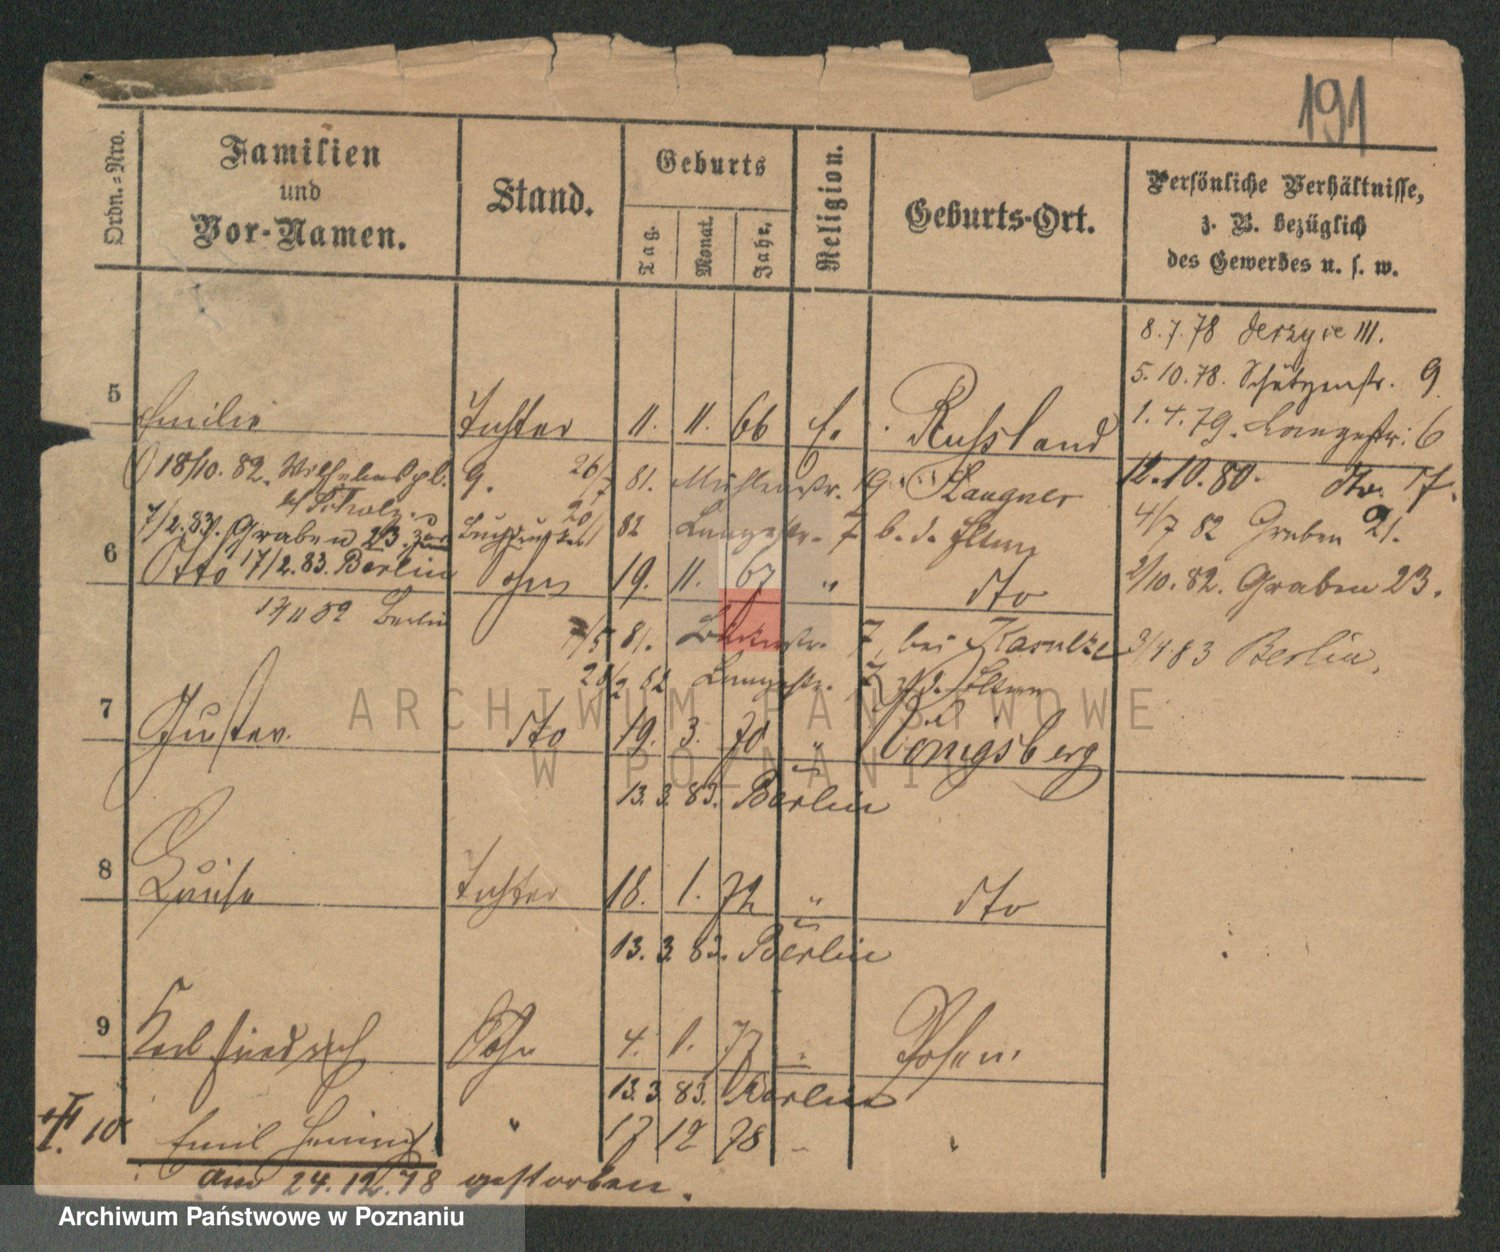 191
Ordn.-Nro.
Familien
und
Vor-Namen.
Stand.
Geburts
Tag.
Monat.
Jahr.
Religion.
Geburts-Ort.
Persönliche Verhältnisse,
z. B. bezüglich
des Gewerbes u. s. w.
8.7.78 Jerzyce III.
5.10.78. Schützenstr. 9
1.4.79. Langestr. 6
5 Emilie Tochter 11. 11. 66 E. Russland
12.10.80. dto. 7.
18/10. 82. Wilhelmspl. 9. 26/7 81. Mühlenstr. 19
7/2.83. Graben 23. 82 Langestr. 7 b. d. Eltern
4/7 82 Graben 21.
6 Otto 17/2.83. Berlin Sohn 19. 11. 67 " dto
2/10.82. Graben 23.
17 11 82 Berlin
7/5 81. 7, bei
3/4 83 Berlin.
82 Langestr. 7 Eltern
7 Gustav. dto 19. 3. 70 " Königsberg
13. 3. 83. Berlin
8 Louise Tochter 18. 1. 72 " dto
13. 3. 83. Berlin
9 Karl Friedrich Sohn 4. 1. 77 " Posen.
13. 3. 83. Berlin
10 Emil Heinrich " 17 12 78 "
am 24.12.78 gestorben.
ARCHIWUM PAŃSTWOWE
W POZNANIU
Archiwum Państwowe w Poznaniu